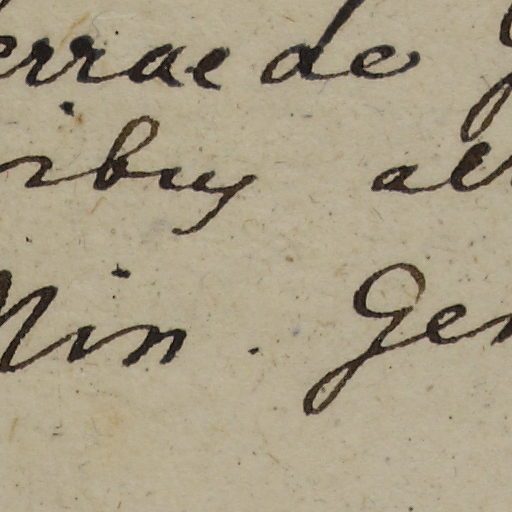 errae de
ribus al
Min. Gen